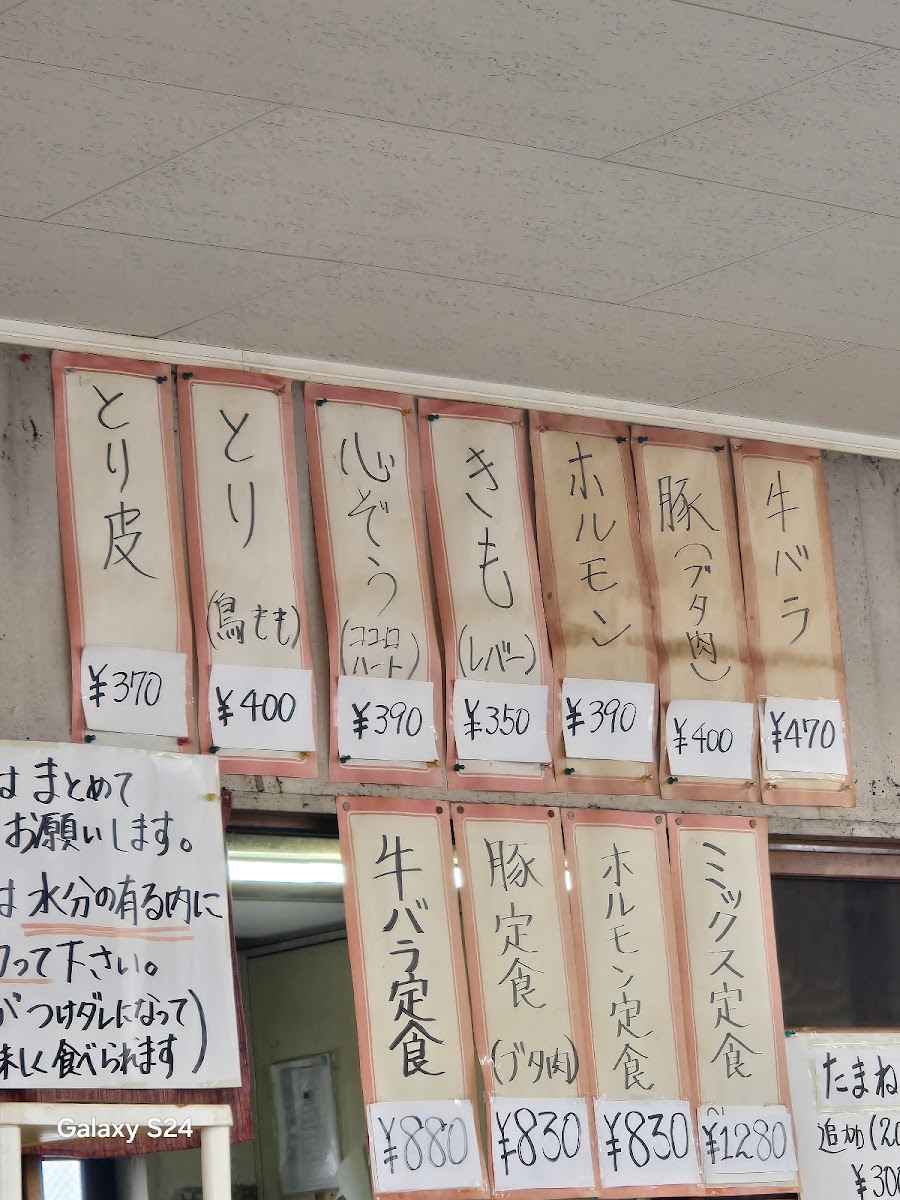 とり皮
¥370
とり
(鳥もも)
¥400
心ぞう
(ココロ
ハート)
¥390
きも
(レバー)
¥350
ホルモン
¥390
豚(ブタ肉)
¥400
牛バラ
¥470
はまとめて
お願いします。
は水分の有る内に
って下さい。
がつけダレになって
味しく食べられます)
牛バラ定食
¥880
豚定食
(ブタ肉)
¥830
ホルモン定食
¥830
ミックス定食
¥1280
たまね
追加(20
¥300
Galaxy S24